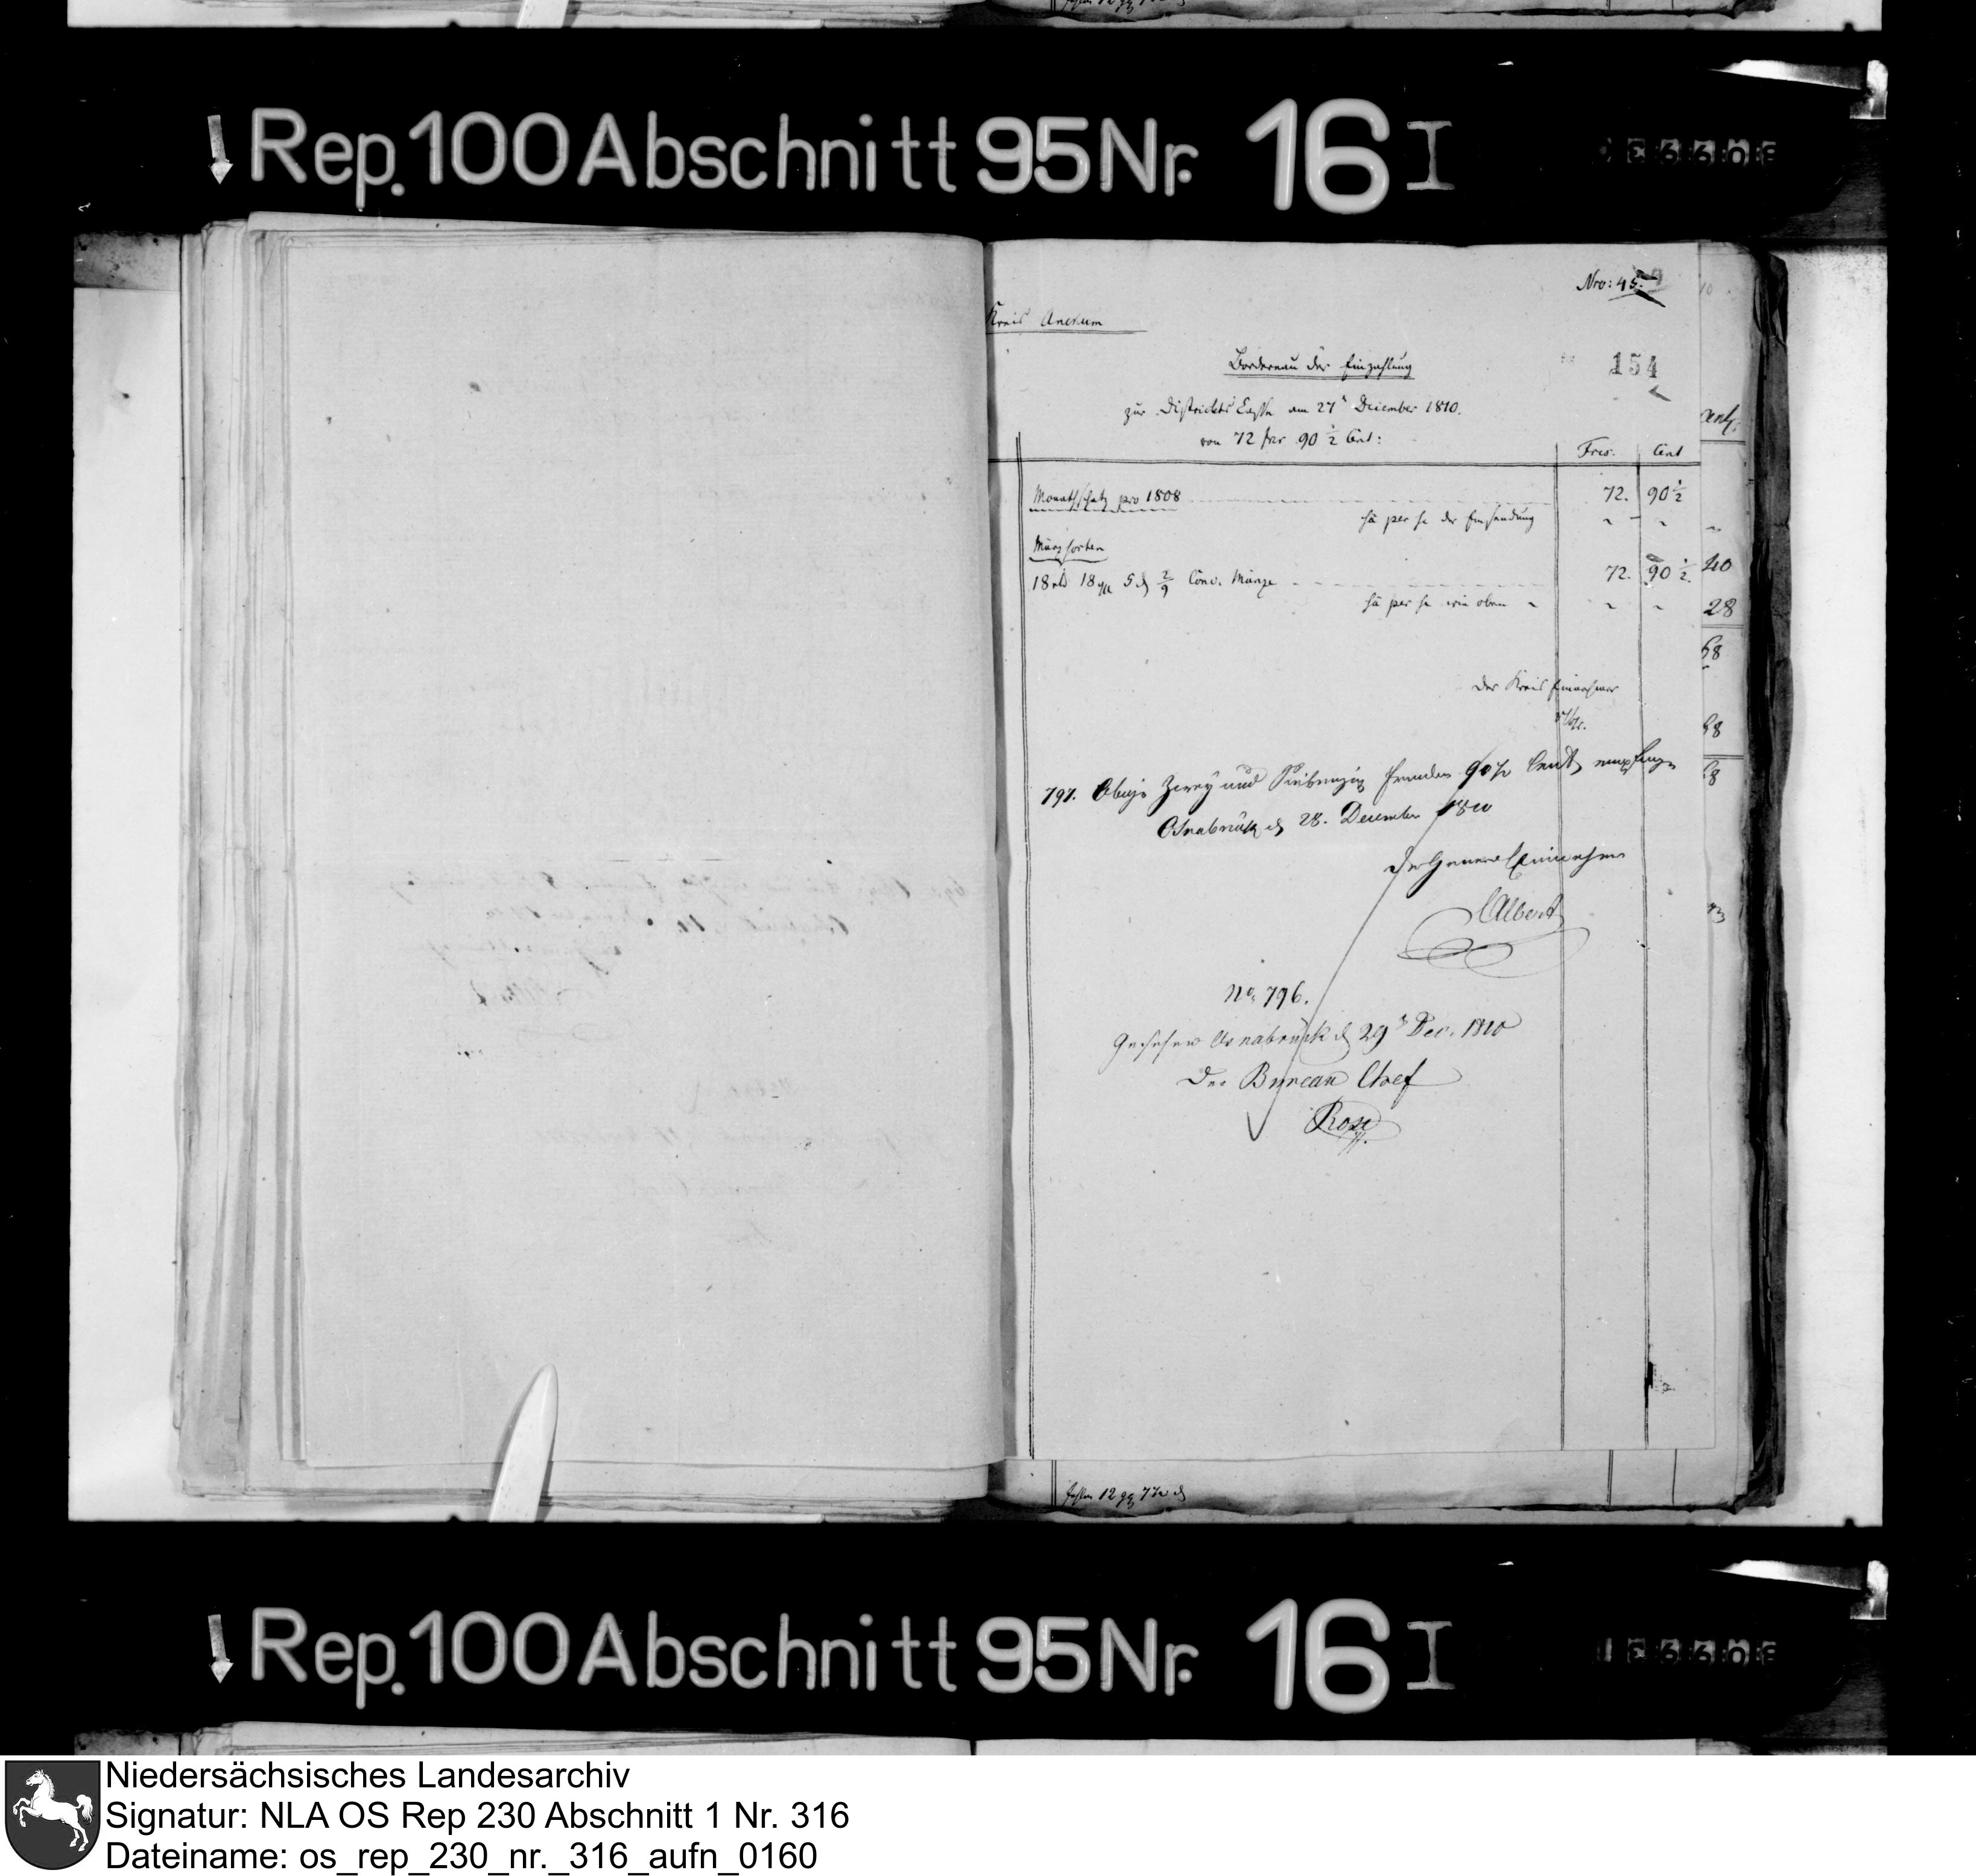 Rep. 100 Abschnitt 95 Nr. 16 I
Nro: 45
Kreis Anckum
154
Bordereau der Einzahlung
zur Districkts Casse am 27t December 1810.
von 72 frcs 90 1/2 Cent:
Frcs. Cent
Monathschatz pro 1808 72. 90 1/2
Sa per se der Einsendung
Münzsorten
18 rtl 18 5 2/9 Conv. Münze 72. 90 1/2
Sa per se wie oben
40
28
68
Der Kreis Einnehmer
68
797. Obige Zwey und Siebenzig Franken 90 1/2 Cent empfangen
68
Osnabrück d 28. December 1810
Der General Einnehmer
Albert
No 796.
Gesehen Osnabrück d 29t Dec. 1810
Der Bureau Chef
Rose
fehlen 12 gg 7 1/2 d
Rep. 100 Abschnitt 95 Nr. 16 I
Niedersächsisches Landesarchiv
Signatur: NLA OS Rep 230 Abschnitt 1 Nr. 316
Dateiname: os_rep_230_nr._316_aufn_0160